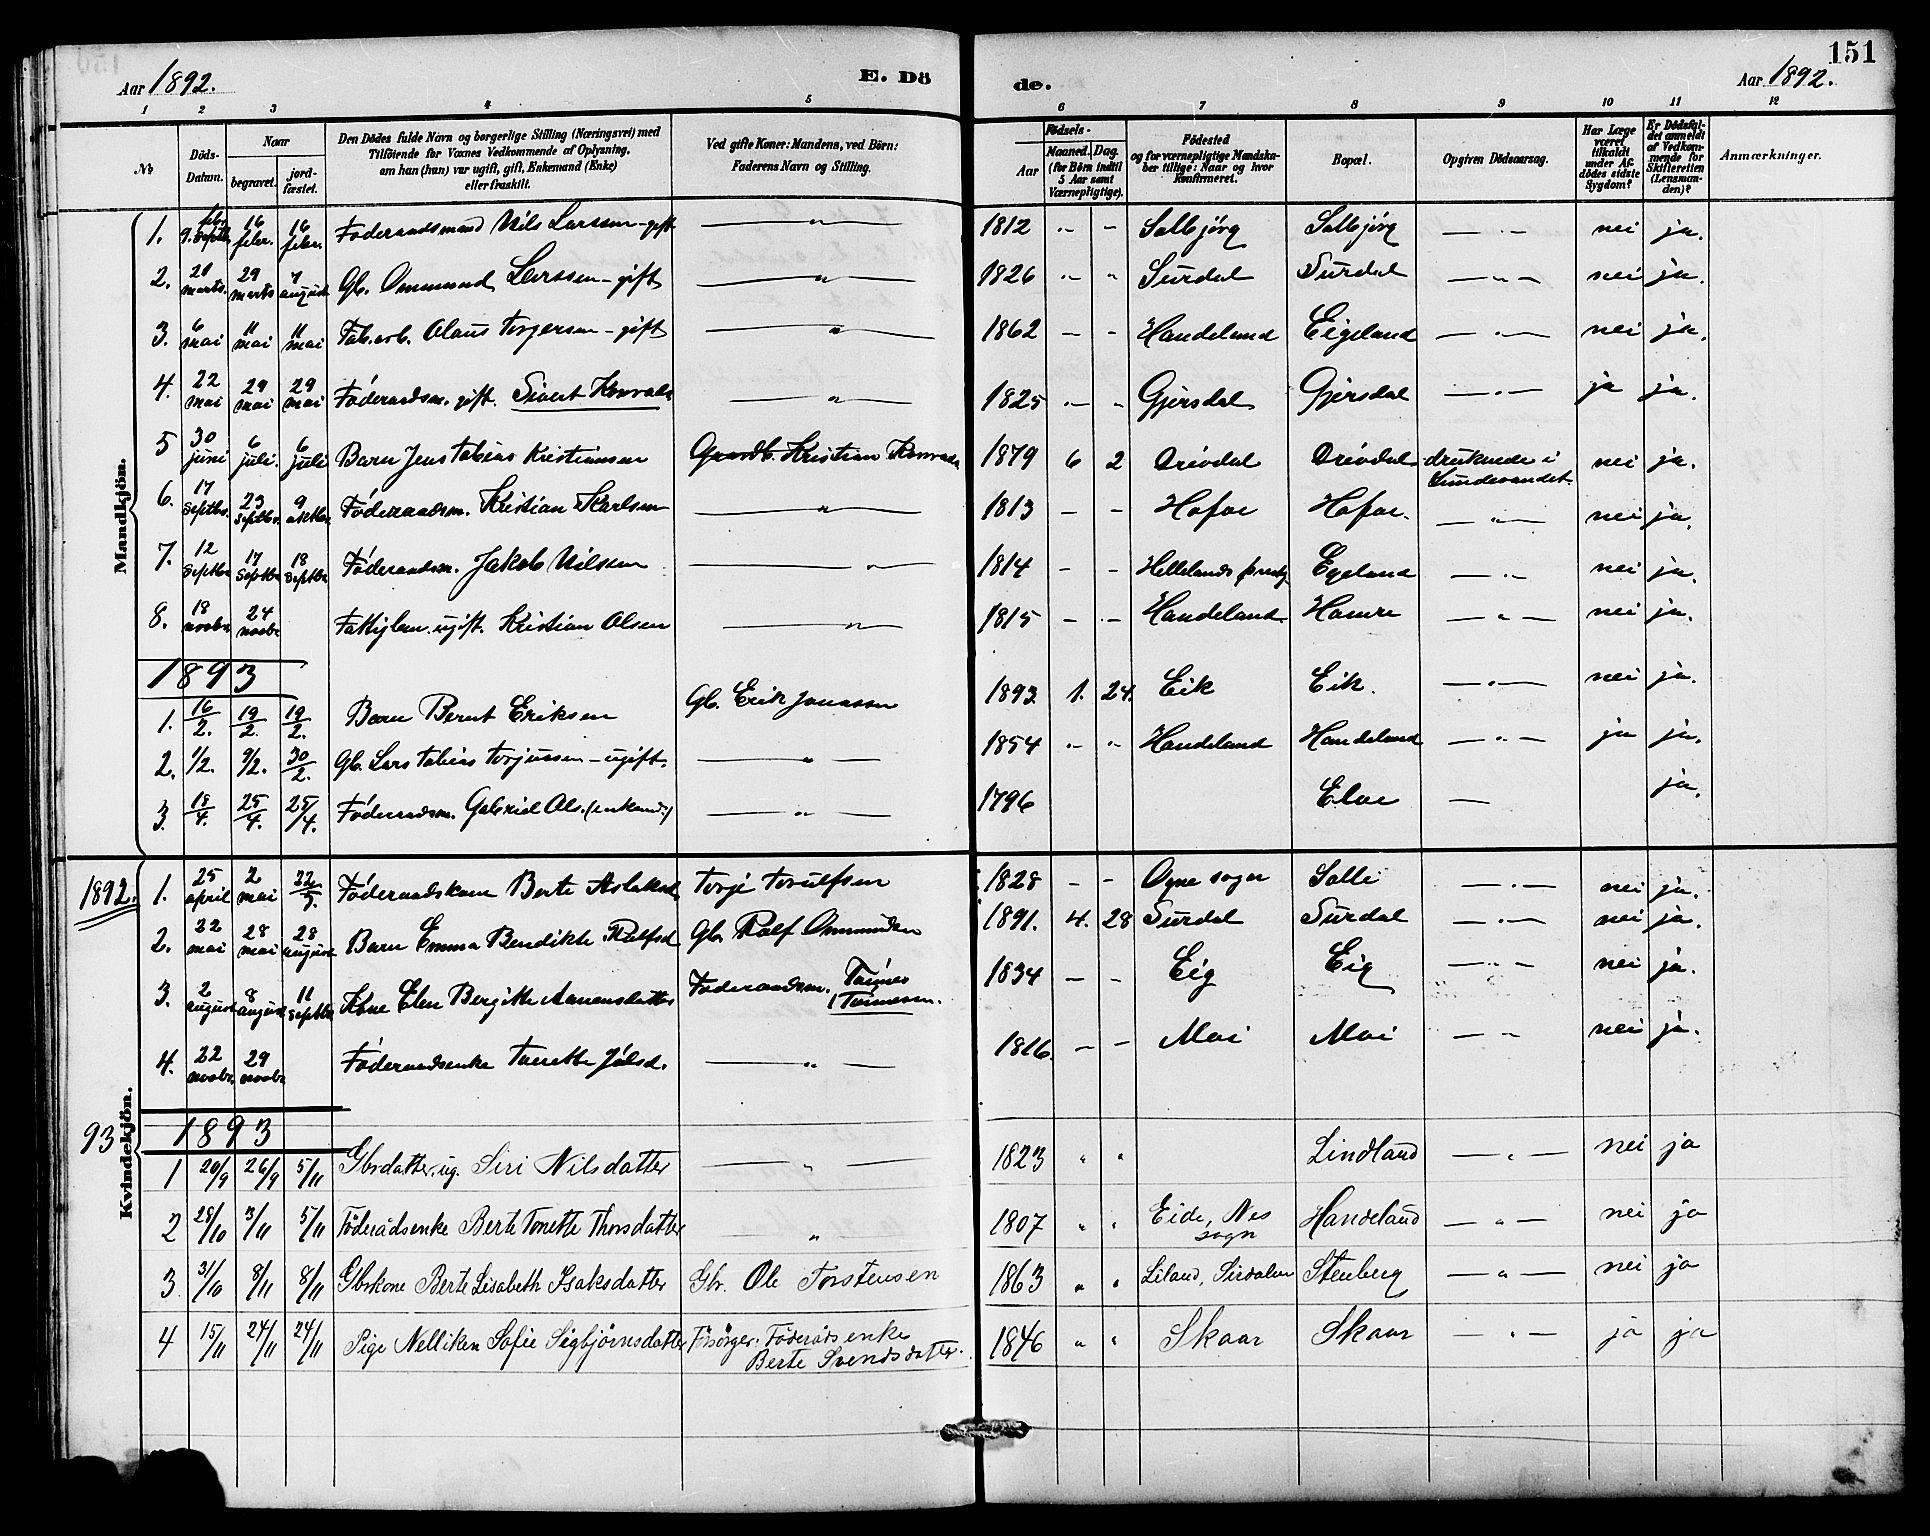 151
Aar 1892. E. Dö de. Aar 1892.
1 2 3 4 5 6 7 8 9 10 11 12
No
Döds-Datum.
Naar begravet. jordfæstet.
Den Dödes fulde Navn og borgerlige Stilling (Næringsvei) med Tilföiende for Voxnes Vedkommende af Oplysning, om han (hun) var ugift, gift, Enkemand (Enke) eller fraskilt.
Ved gifte Koner: Mandens, ved Börn: Faderens Navn og Stilling.
Födsels- Aar Maaned. Dag. (for Börn indtil 5 Aar samt Værnepligtige).
Födested og for værnepligtige Mandskaber tillige: Naar og hvor Konfirmeret.
Bopæl.
Opgiven Dödsaarsag.
Har Læge været tilkaldt under Afdödes sidste Sygdom?
Er Dödsfaldet anmeldt af Vedkommende for Skifteretten (Lensmanden)?
Anmærkninger.
Mandkjön.
1. 9. febr. 16 febr. 16 febr. Føderaadsmand Nils Larssen - gift — " — 1812 " - Salbjørg Salbjørg — " — nei ja.
2. marts. 29 marts 7 august Gb. Ommund Larssen - gift — " — 1826 " " Surdal Surdal — " — nei ja.
3. 6 mai 11 mai 11 mai Fab.arb. Olaus Torgersen - gift — " — 1862 - - Handeland Eigeland — " — nei ja.
4. 22 mai 29 mai 29 mai Føderaadsm. gift. Sivert — " — 1825 " " Gjersdal Gjersdal — " — ja ja.
5 30 juni 6 juli. 6 juli Barn Jens Tobias Kristiansen Gaardb. Kristian 1879 6 2 Drivdal Drivdal druknede i Lundevandet. nei ja.
6. 17 septbr. 23 septbr. 9 oktbr. Føderaadsm. Kristian Karlsen — " — 1813 - - Hofoe Hofoe. — " — nei ja.
7. 12 septbr 17 septbr 18 septbr Føderaadsm. Jakob Nilsen — " — 1814 - - Hellelands Egeland — " — nei ja.
8. 18 novbr 24 novbr Fattiglem. ugift. Kristian Olsen — " — 1815 - - Handeland Hamre — " — nei ja.
1893
1. 16/2. 19/2. 19/2. Barn Bernt Eriksen Gb. Erik Jonassen 1893 1. 24. Eik Eik. — " — nei ja.
2. 1/2. 9/2. 30/2. Gb. Lars Tobias Torjussen - ugift. — " — 1854 " " Handeland Handeland — " — ja ja.
3. 18/4. 25/4. 25/4. Føderaadsm. Gabriel Ols. (enkemd.) — " — 1796 Eloe — ja.
Kvindekjön.
1892. 1. 25 april 2 mai Føderaadskone Berte Aslaksd. Torje Torulfsen 1828 - - Ogne sogn Salli — " — nei ja.
2. 22 mai 28 mai 28 august Barn Emma Bendikte Rolfsd. Gb. Rolf Ommundsen 1891. 4. 28 Surdal Surdal — " — nei ja.
3. 2 august 8 august 11 septbr Kone Elen Bergitte Aanensdatter Føderaadsm. Tønnes Tønnesen. 1834 - - Eig Eig — " — nei ja.
4. 22 novbr. 29 novbr Føderaadsenke Tonette Jølsd. — " — 1816. - - Moi Moi — " nei ja.
93 1893
1 20/9 26/9 5/11 Gbrdatter, ug. Siri Nilsdatter — " — 1823 " " Lindland — " — nei ja
2 28/10 3/11 5/11 Føderådsenke Berte Tonette Thorsdatter — " — 1807 " " Eide, Nes sogn Handeland — " — nei ja
3 31/10 8/11 8/11 Gbrkone Berte Lisabeth Isaksdatter Gbr. Ole Torstensen 1863 " " Liland, Sirdalen Stenberg — " — nei ja
4 15/11 24/11 24/11 Pige Nelliken Sofie Sigbjørnsdatter Forsørger: Føderådsenke Berte Svendsdatter. 1846 " " Skaar Skaar — " — ja ja